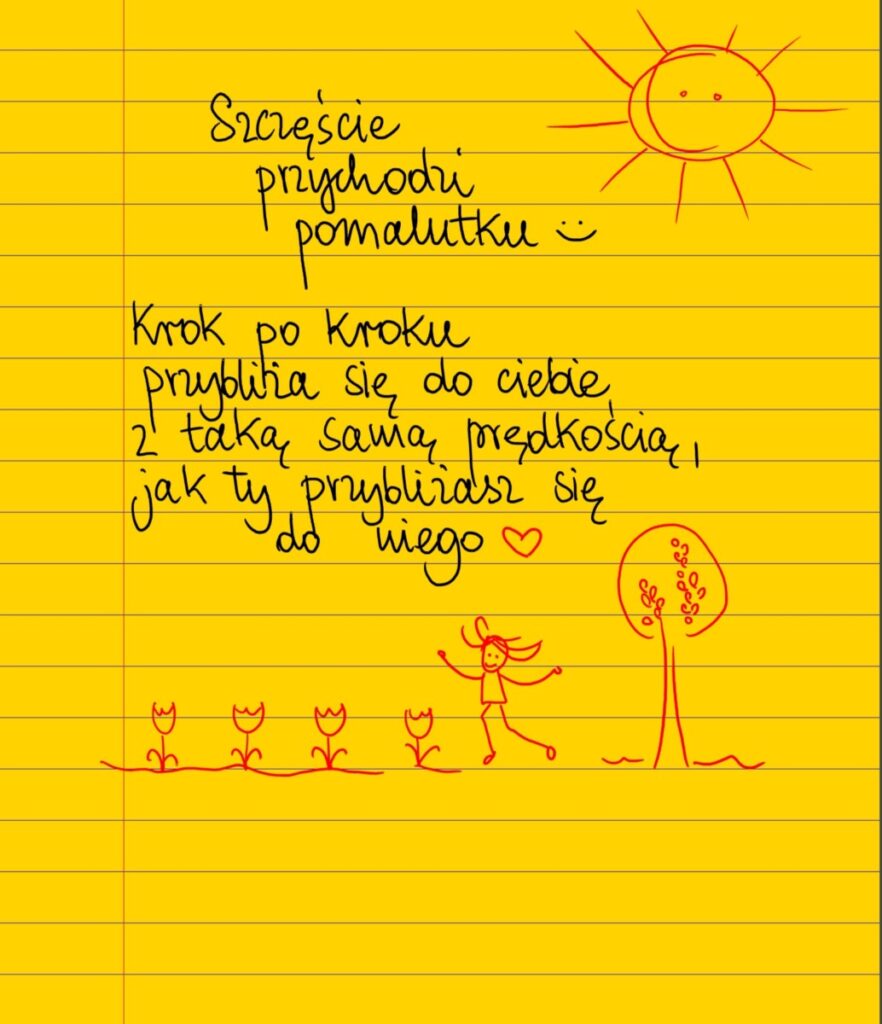 Szczęście
przychodzi
pomalutku :)
Krok po kroku
przybliża się do ciebie
z taką samą prędkością,
jak ty przybliżasz się
do niego ♡